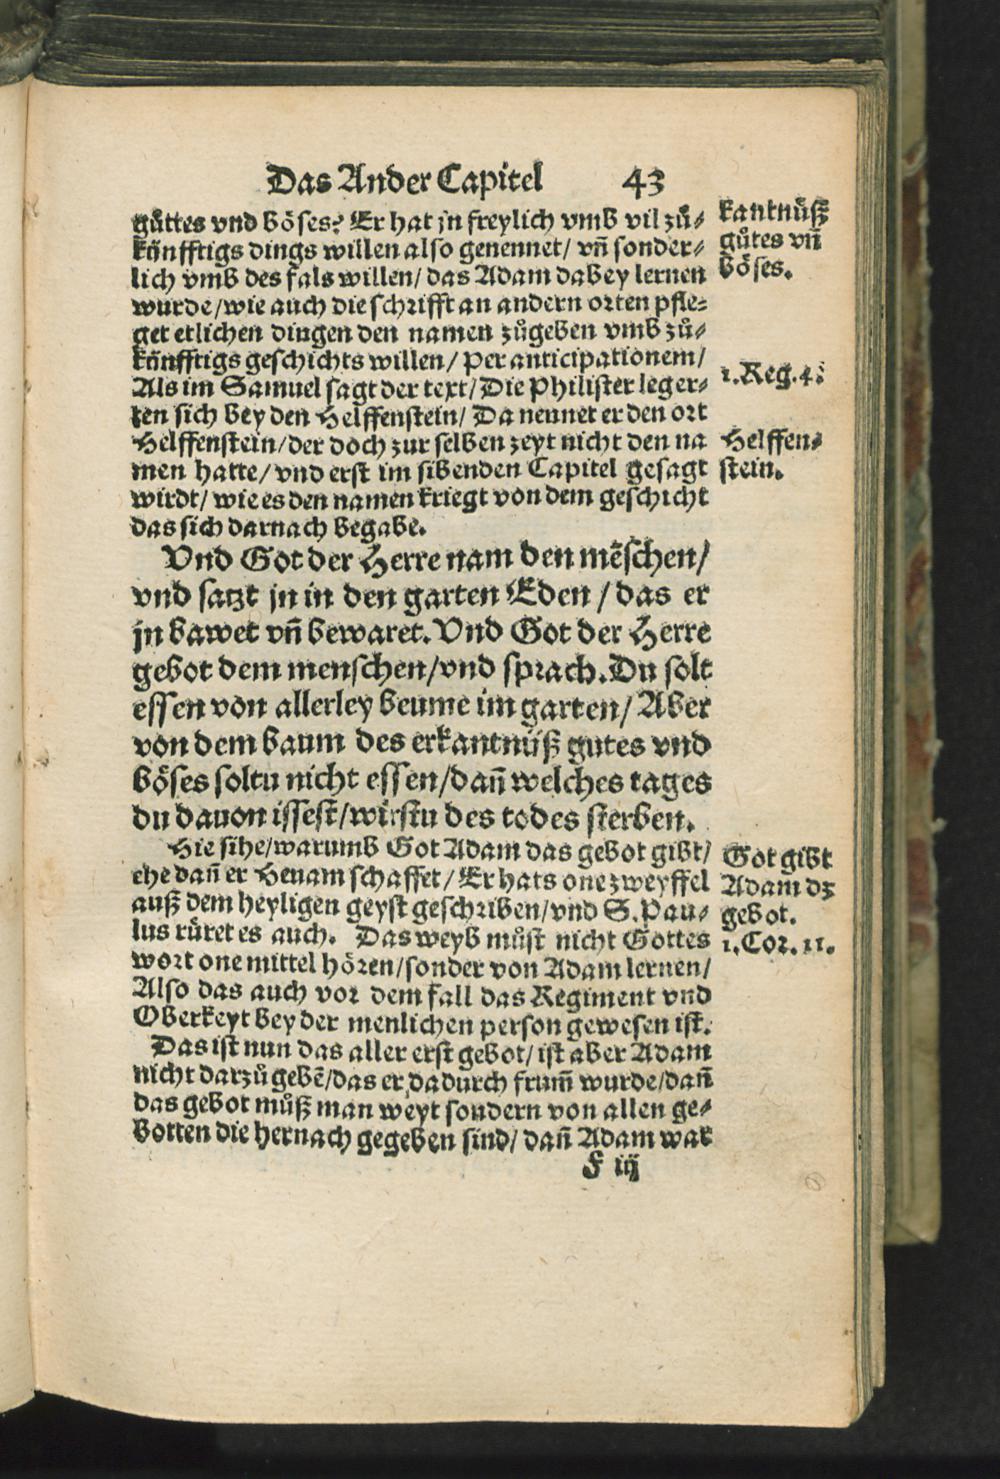 Das Ander Capitel 43
gůttes vnd böses? Er hat jn freylich vmb vil zů⸗
könfftigs dings willen also genennet/ vn̄ sonder⸗
lich vmb des fals willen/ das Adam dabey lernen
wurde/wie auch die schrifft an andern orten pfle⸗
get etlichen dingen den namen zůgeben vmb zů⸗
könfftigs geschichts willen/ Per anticipationem/
Als im Samuel sagt der text/ Die Philister leger⸗
ten sich bey den Helffenstein/ Da nennet er den ort
Helffenstein/der doch zur selben zeyt nicht den na
men hatte/ vnd erst im sibenden Capitel gesagt
wirdt/ wie es den namen kriegt von dem geschicht
das sich darnach begabe.
kantnůß
gůtes vn̄
böses.
1.Reg.4.
Helffen⸗
stein.
Vnd Got der Herre nam den mẽschen/
vnd satzt jn in den garten Eden / das er
jn bawet vn̄ bewaret. Vnd Got der Herre
gebot dem menschen/vnd sprach. Du solt
essen von allerley beume im garten/ Aber
von dem baum des erkantnüß gutes vnd
böses soltu nicht essen/dan̄ welches tages
du dauon issest/wirstu des todes sterben.
Hie sihe/warumb Got Adam das gebot gibt/
ehe dan̄ er Heuam schaffet/ Er hats one zweyffel
auß dem heyligen geyst geschriben/vnd S. Pau⸗
lus rüret es auch. Das weyb můst nicht Gottes
wort one mittel hören/sonder von Adam lernen/
Also das auch vor dem fall das Regiment vnd
Oberkeyt bey der menlichen person gewesen ist.
Got gibt
Adam dz
gebot.
1.Cor. 11.
Das ist nun das aller erst gebot/ ist aber Adam
nicht darzů gebẽ/das er dadurch frum̄ wurde/dan̄
das gebot můß man weyt sondern von allen ge⸗
botten die hernach gegeben sind/ dan̄ Adam war
F iij